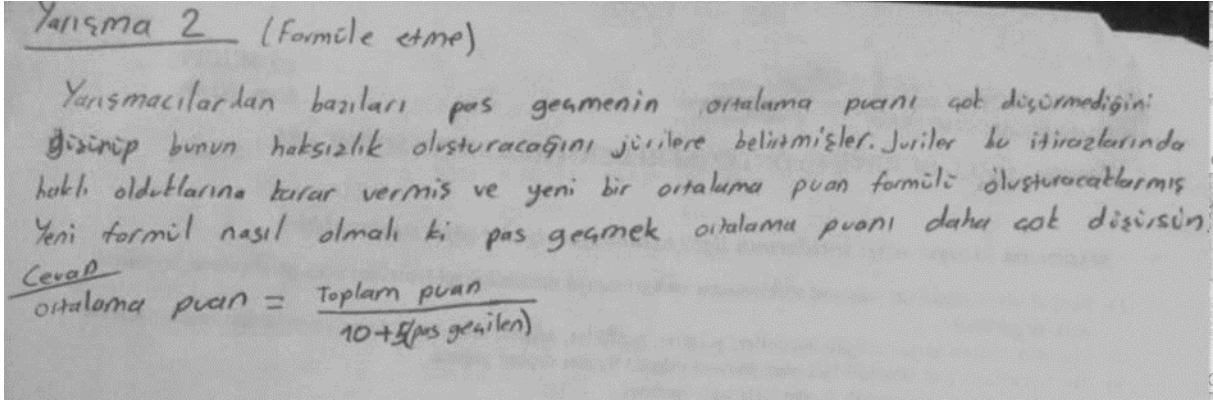 Yarışma 2 (Formüle etme)
Yarışmacılardan bazıları pas geçmenin ortalama puanı çok düşürmediğini
düşünüp bunun haksızlık oluşturacağını jürilere belirtmişler. Juriler bu itirazlarında
haklı olduklarına karar vermiş ve yeni bir ortalama puan formülü oluşturacaklarmış
Yeni formül nasıl olmalı ki pas geçmek ortalama puanı daha çok düşürsün
Cevap
ortalama puan = Toplam puan
10+5(pas geçilen)